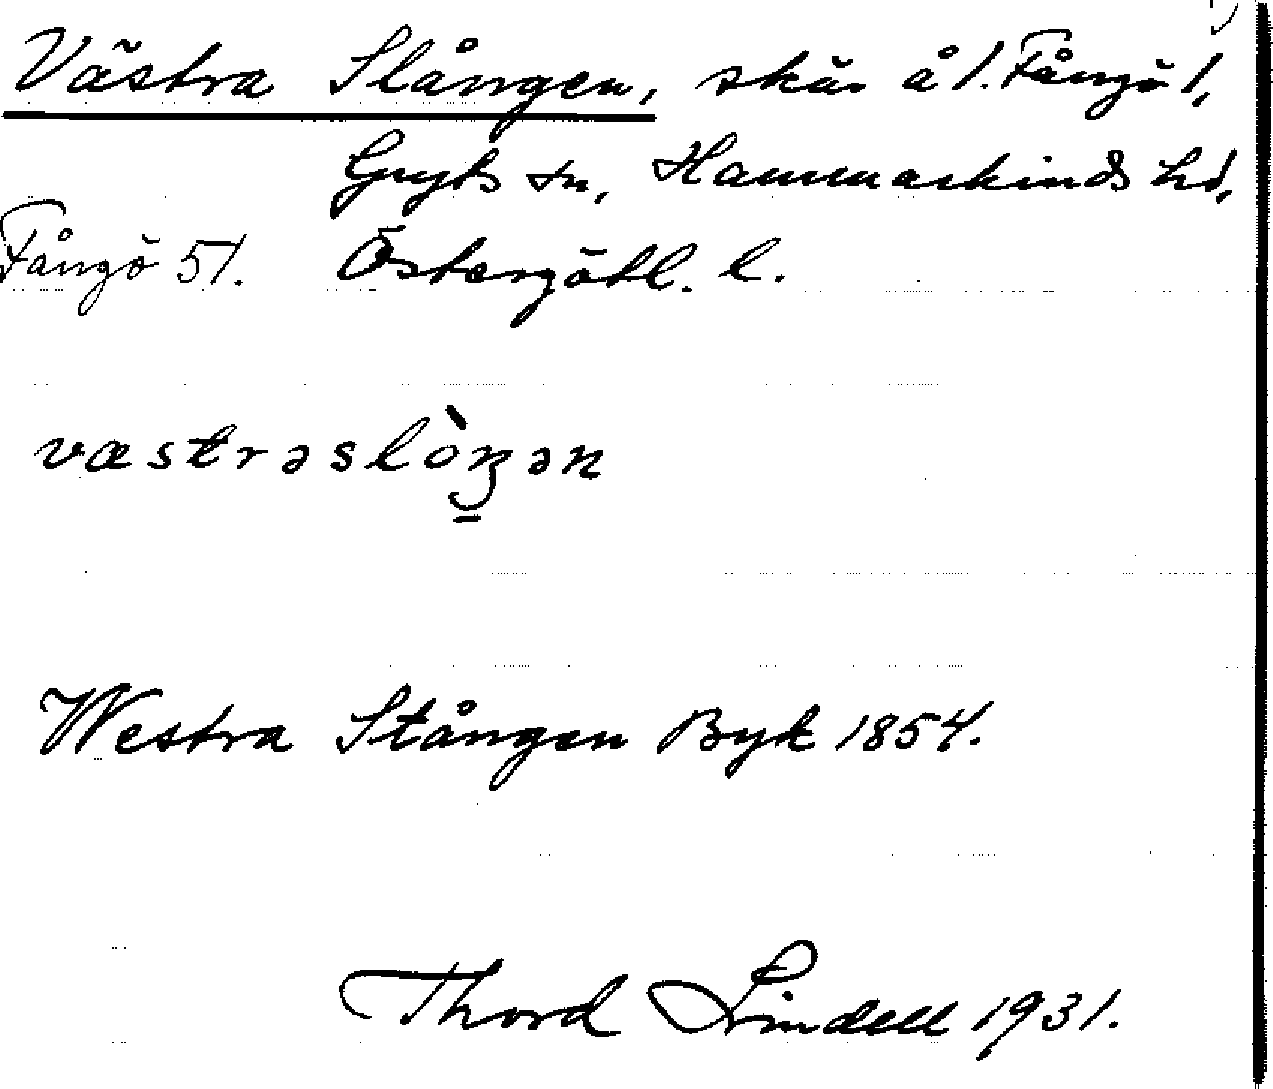 Västra Slången, skär å 1. Fångö 1,
Gryts sn, Hammarkinds hd,
Fångö 51. Östergötl. l.
væstrəslòŋən
Westra Stången Byk 1854.
Thord Lindell 1931.